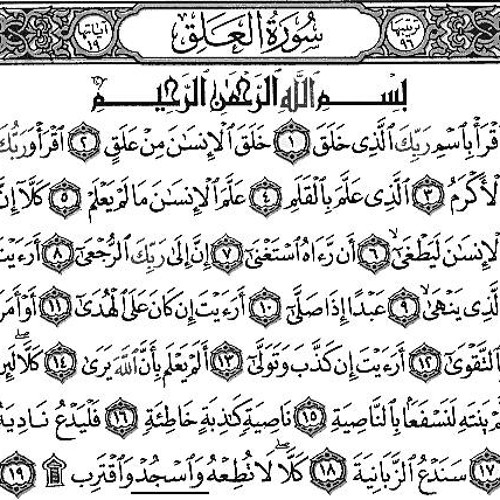 ترتيبها ٩٦ سُورَةُ العَلَق آياتها ١٩
بِسْمِ ٱللَّهِ ٱلرَّحْمَٰنِ ٱلرَّحِيمِ
قْرَأْ بِٱسْمِ رَبِّكَ ٱلَّذِى خَلَقَ ١ خَلَقَ ٱلْإِنسَٰنَ مِنْ عَلَقٍ ٢ ٱقْرَأْ وَرَبُّكَ
لْأَكْرَمُ ٣ ٱلَّذِى عَلَّمَ بِٱلْقَلَمِ ٤ عَلَّمَ ٱلْإِنسَٰنَ مَا لَمْ يَعْلَمْ ٥ كَلَّآ إِنَّ
لْإِنسَٰنَ لَيَطْغَىٰٓ ٦ أَن رَّءَاهُ ٱسْتَغْنَىٰٓ ٧ إِنَّ إِلَىٰ رَبِّكَ ٱلرُّجْعَىٰٓ ٨ أَرَءَيْتَ
لَّذِى يَنْهَىٰ ٩ عَبْدًا إِذَا صَلَّىٰٓ ١٠ أَرَءَيْتَ إِن كَانَ عَلَى ٱلْهُدَىٰٓ ١١ أَوْ أَمَرَ
بِٱلتَّقْوَىٰٓ ١٢ أَرَءَيْتَ إِن كَذَّبَ وَتَوَلَّىٰٓ ١٣ أَلَمْ يَعْلَم بِأَنَّ ٱللَّهَ يَرَىٰ ١٤ كَلَّا لَئِن
لَّمْ يَنتَهِ لَنَسْفَعًۢا بِٱلنَّاصِيَةِ ١٥ نَاصِيَةٍ كَٰذِبَةٍ خَاطِئَةٍ ١٦ فَلْيَدْعُ نَادِيَهُۥ
١٧ سَنَدْعُ ٱلزَّبَانِيَةَ ١٨ كَلَّا لَا تُطِعْهُ وَٱسْجُدْ وَٱقْتَرِب ۩ ١٩